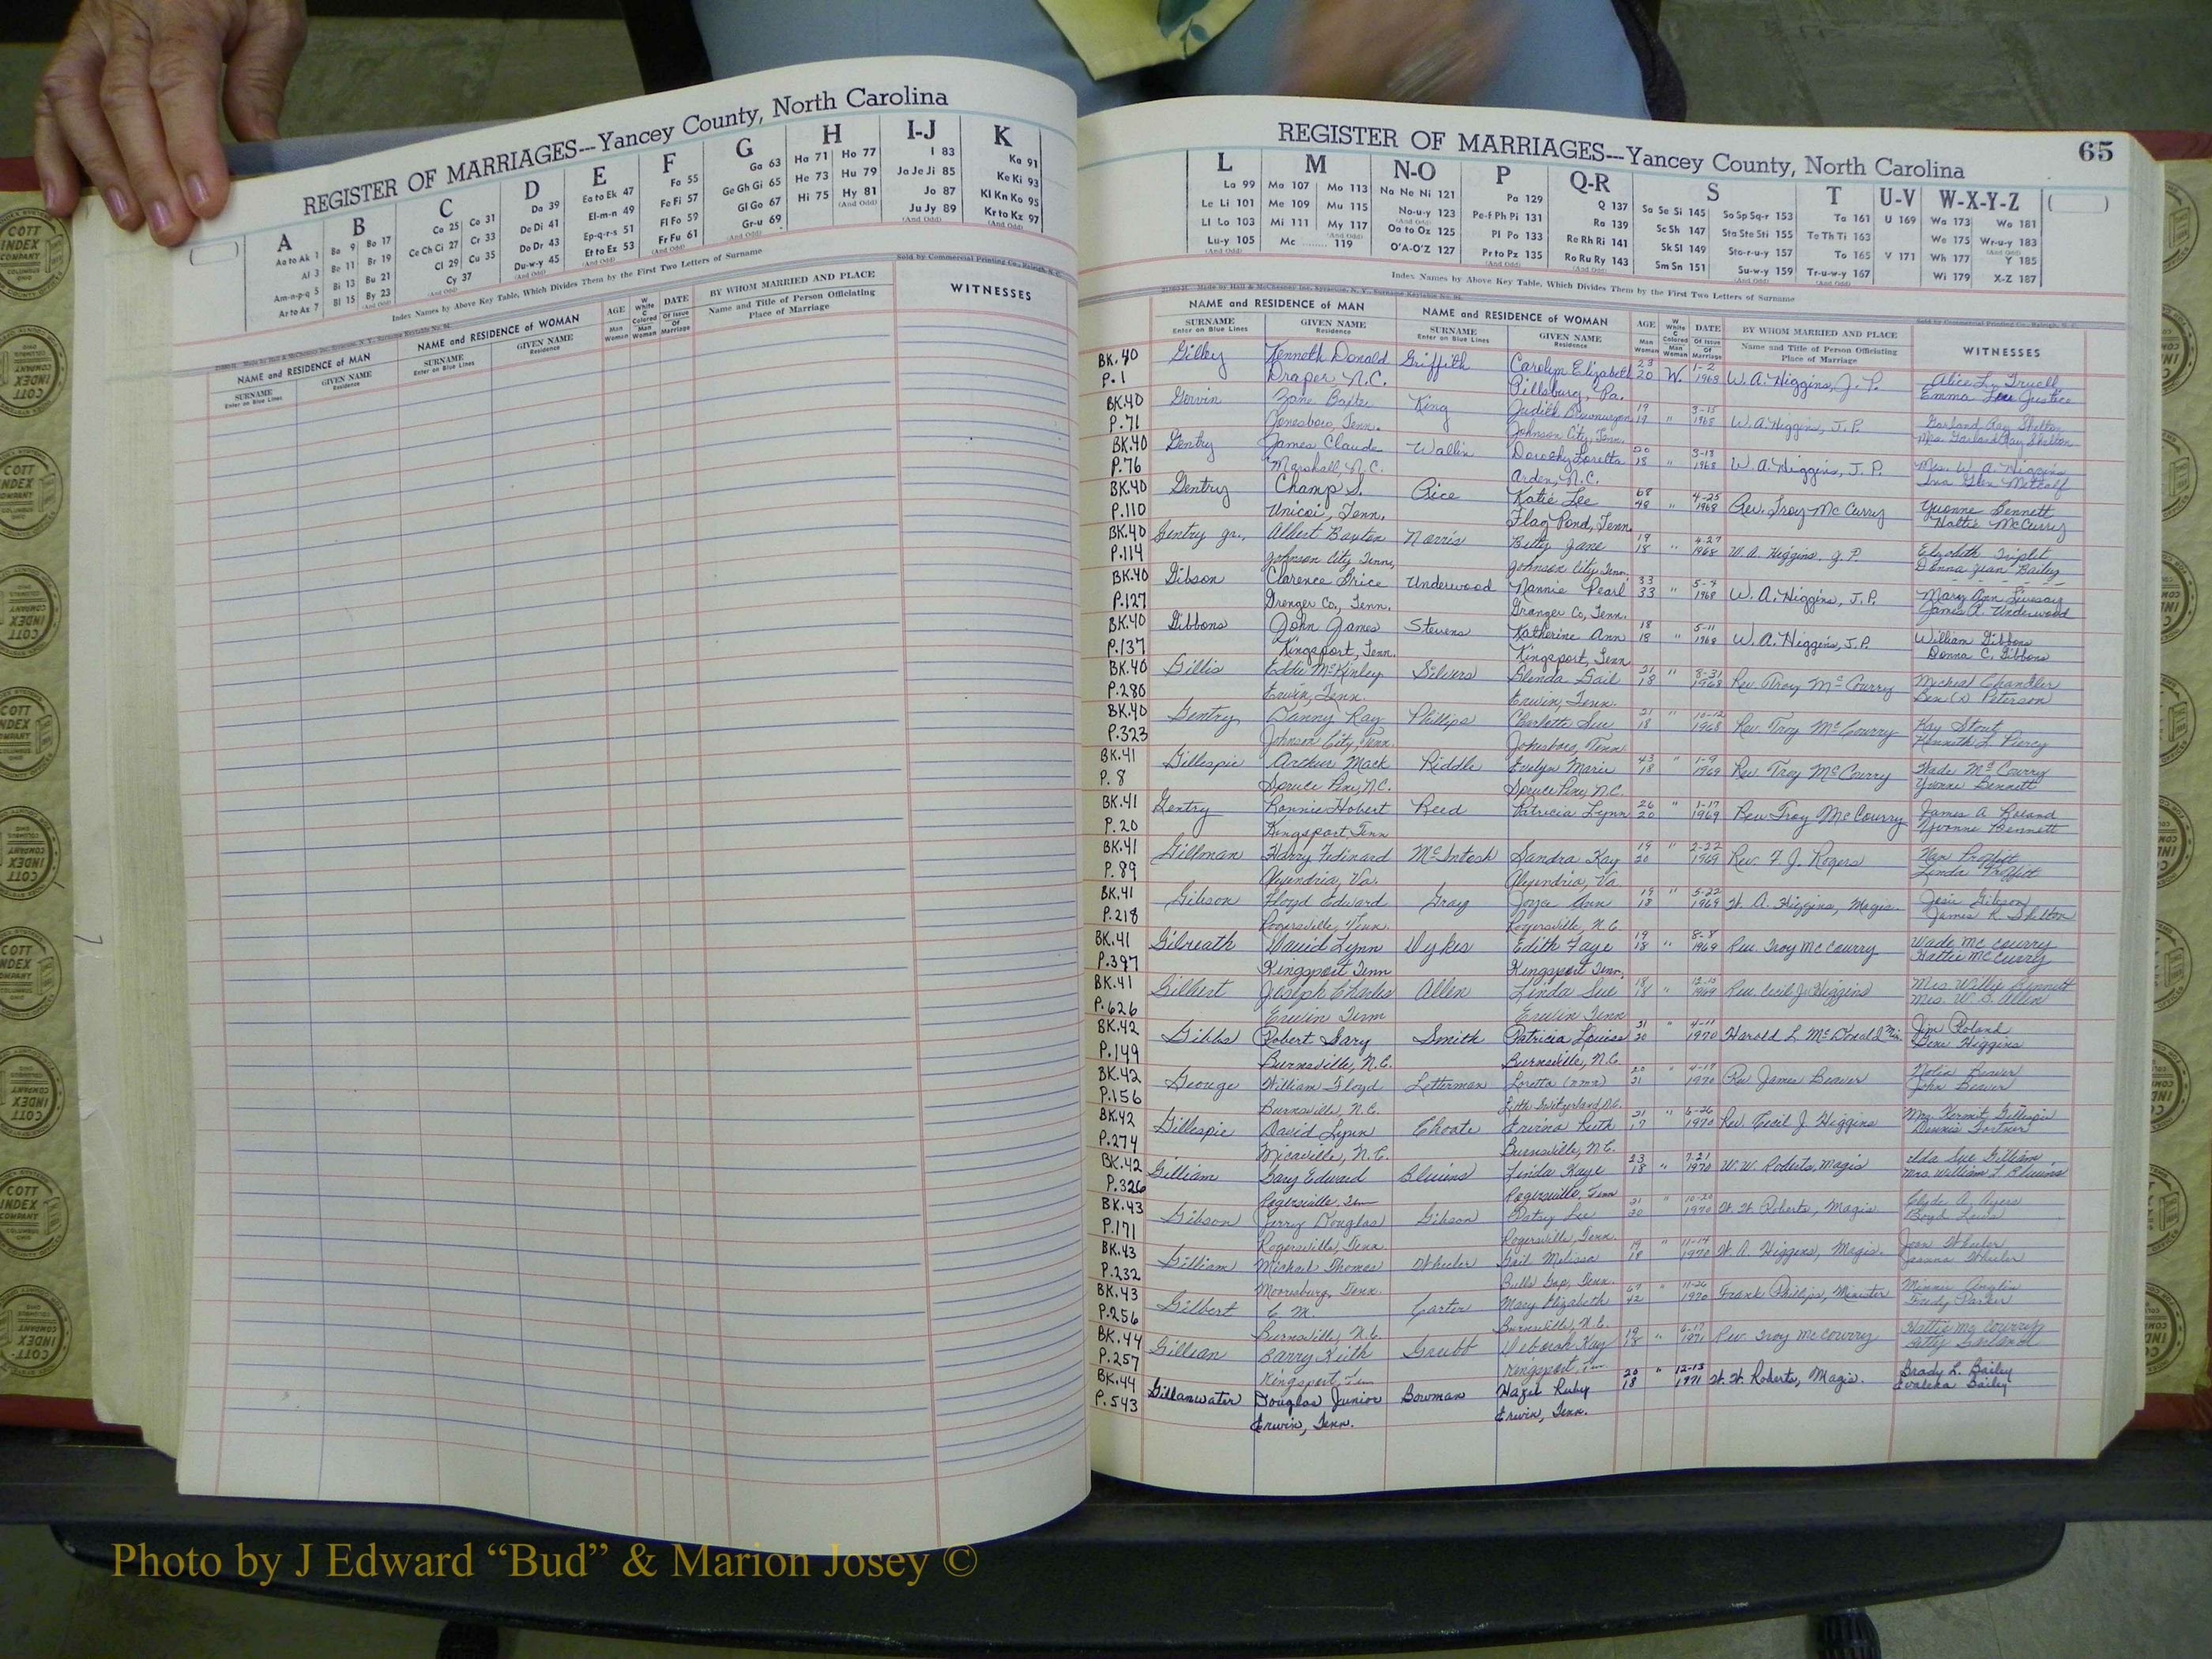 REGISTER OF MARRIAGES---Yancey County, North Carolina
A
Aa to Ak 1
Al 3
Am-n-p-q 5
Ar to Az 7
B
Ba 9 Bo 17
Be 11 Br 19
Bi 13 Bu 21
Bl 15 By 23
(And Odd)
C
Ca 25 Co 31
Ce Ch Ci 27 Cr 33
Cl 29 Cu 35
Cy 37
(And Odd)
D
Da 39
De Di 41
Do Dr 43
Du-w-y 45
(And Odd)
E
Ea to Ek 47
El-m-n 49
Ep-q-r-s 51
Et to Ez 53
F
Fa 55
Fe Fi 57
Fl Fo 59
Fr Fu 61
(And Odd)
G
Ga 63
Ge Gh Gi 65
Gl Go 67
Gr-u 69
(And Odd)
H
Ha 71 Ho 77
He 73 Hu 79
Hi 75 Hy 81
(And Odd)
I-J
I 83
Ja Je Ji 85
Jo 87
Ju Jy 89
(And Odd)
K
Ka 91
Ke Ki 93
Kl Kn Ko 95
Kr to Kz 97
Index Names by Above Key Table, Which Divides Them by the First Two Letters of Surname
Sold by Commercial Printing Co., Raleigh, N. C.
NAME and RESIDENCE of MAN
SURNAME
Enter on Blue Lines
GIVEN NAME
Residence
NAME and RESIDENCE OF WOMAN
SURNAME
Enter on Blue Lines
GIVEN NAME
Residence
AGE
Man
Woman
W White
C Colored
Man
Woman
DATE
Of Issue
Of Marriage
BY WHOM MARRIED AND PLACE
Name and Title of Person Officiating
Place of Marriage
WITNESSES
REGISTER OF MARRIAGES---Yancey County, North Carolina
65
L
La 99
Le Li 101
Ll Lo 103
Lu-y 105
(And Odd)
M
Ma 107 Mo 113
Me 109 Mu 115
Mi 111 My 117
(And Odd)
Mc ........ 119
N-O
Na Ne Ni 121
No-u-y 123
(And Odd)
Oa to Oz 125
O'A-O'Z 127
P
Pa 129
Pe-f Ph Pi 131
Pl Po 133
Pr to Pz 135
(And Odd)
Q-R
Q 137
Ra 139
Re Rh Ri 141
Ro Ru Ry 143
(And Odd)
S
Sa Se Si 145 So Sp Sq-r 153
Sc Sh 147 Sta Ste Sti 155
Sk Sl 149 Sto-r-u-y 157
Sm Sn 151 Su-w-y 159
(And Odd)
T
Ta 161
Te Th Ti 163
To 165
Tr-u-w-y 167
(And Odd)
U-V
U 169
V 171
W-X-Y-Z
Wa 173 Wo 181
We 175 Wr-u-y 183
Wh 177 Y 185
Wi 179 X-Z 187
Index Names by Above Key Table, Which Divides Them by the First Two Letters of Surname
Made by Hall & McChesney Inc. Syracuse, N. Y.
Sold by Commercial Printing Co., Raleigh, N. C.
NAME and RESIDENCE of MAN
SURNAME
Enter on Blue Lines
GIVEN NAME
Residence
NAME and RESIDENCE OF WOMAN
SURNAME
Enter on Blue Lines
GIVEN NAME
Residence
AGE
Man
Woman
W White
C Colored
Man
Woman
DATE
Of Issue
Of Marriage
BY WHOM MARRIED AND PLACE
Name and Title of Person Officiating
Place of Marriage
WITNESSES
BK.40 Gilley Kenneth Donald Griffith Carolyn Elizabeth 23 W. 1-2 W. A. Higgins, J. P. Alice L. Truell
P.1 Draper, N.C. Pittsburg, Pa. 20 1968 Emma Lee Justice
BK.40 Zane King Judith 19 " 3-15 W. A. Higgins, J.P. Garland Ray Shelton
P.71 Jonesboro, Tenn. Johnson City, Tenn. 19 1968 Mrs. Garland Ray Shelton
BK.40 Gentry James Claude Wallin Dorothy Loretta 20 " 3-18 W. A. Higgins, J. P. Mrs. W. A. Higgins
P.76 Marshall, N.C. Arden, N.C. 18 1968 Metcalf
BK.40 Gentry Champ S. Rice Katie Lee 68 " 4-25 Rev. Troy McCurry Yvonne Bennett
P.110 Unicoi, Tenn. Flag Pond, Tenn. 48 1968 Hattie McCurry
BK.40 Gentry Jr., Albert Norris Betty Jane 19 " 4-27 W. A. Higgins, J. P. Elizabeth Triplet
P.114 Johnson City Tenn, Johnson City Tenn. 18 1968 Donna Jean Bailey
BK.40 Gibson Clarence Price Underwood Nannie Pearl 33 " 5-7 W. A. Higgins, J.P. Mary Ann Livesay
P.127 Grenger Co, Tenn. Granger Co, Tenn. 33 1968 James A. Underwood
BK.40 Gibbons John James Stevens Katherine Ann 18 " 5-11 W. A. Higgins, J.P. William Gibbons
P.137 Kingsport, Tenn. Kingsport, Tenn 18 1968 Donna C. Gibbons
BK.40 Gillis Eddie McKinley Silvers Glenda Gail 21 " 8-31 Rev. Troy McCourry Micheal Chandler
P.280 Erwin, Tenn. Erwin, Tenn. 18 1968 Ben (x) Peterson
BK.40 Gentry Danny Ray Phillips Charlotte Sue 21 " 10-12 Rev. Troy McCourry Kay Stout
P.323 Johnson City, Tenn. Jonesboro, Tenn 18 1968 Kenneth L. Piercy
BK.41 Gillespie Arthur Mack Riddle Evelyn Marie 43 " 1-9 Rev. Troy McCourry Wade McCourry
P.8 Spruce Pine, N.C. Spruce Pine, N.C. 18 1969 Yvonne Bennett
BK.41 Gentry Ronnie Hobert Reed Patricia Lynn 26 " 1-17 Rev. Troy McCourry James A. Roland
P.20 Kingsport, Tenn 20 1969 Yvonne Bennett
BK.41 Gillman Harry Fedinard McIntosh Sandra Kay 19 " 2-22 Rev. F. J. Rogers Nan Proffitt
P.89 Alexendria, Va. Alexendria, Va. 20 1969 Linda Proffitt
BK.41 Gibson Floyd Edward Gray Joyce Ann 19 " 5-22 W. A. Higgins, Magis. Gibson
P.218 Rogersville, Tenn. Rogersville, N.C. 18 1969 James R. Shelton
BK.41 Gilreath David Lynn Dykes Edith Faye 19 " 8-8 Rev. Troy McCourry Wade McCourry
P.397 Kingsport Tenn Kingsport Tenn, 18 1969 Hattie McCurry
BK.41 Gilbert Joseph Charles Allen Linda Sue 18 " 12-15 Rev. Cecil J. Higgins Mrs Willie Bennett
P.626 Erwin Tenn Erwin Tenn 18 1969 Mrs. W. D. Allen
BK.42 Gibbs Robert Gary Smith Patricia Louise 21 " 4-11 Harold L. McDonald Min. Jim Roland
P.149 Burnsville, N.C. Burnsville, N.C. 20 1970 Gene Higgins
BK.42 George William Floyd Letterman Loretta (nmn) 20 " 4-17 Rev. James Beaver Beaver
P.156 Burnsville, N.C. Little Switzerland, N.C. 21 1970 John Beaver
BK.42 Gillespie David Lynn Choate Ruth 21 " 6-26 Rev. Cecil J. Higgins Mrs. Kermit Gillespie
P.274 Micaville, N.C. Burnsville, N.C. 17 1970 Dennis Fortner
BK.42 Gilliam Gary Edward Blevins Linda Kaye 23 " 7-21 W. W. Roberts, Magis Ida Sue Gilliam
P.326 Rogersville, Tenn Rogersville, Tenn 18 1970 Mrs William T. Blevins
BK.43 Gibson Jerry Douglas Gibson Patsy Lee 21 " 10-20 W. W. Roberts, Magis. Clyde A. Ayers
P.171 Rogersville, Tenn. Rogersville, Tenn. 20 1970 Boyd Lewis
BK.43 Gilliam Michael Thomas Wheeler Gail Melissa 19 " 11-14 W. A. Higgins, Magis. Joan Wheeler
P.232 Mooresburg, Tenn. Bulls Gap, Tenn. 18 1970 Wheeler
BK.43 Gilbert C. M. Carter Mary Elizabeth 69 " 11-26 Frank Phillips, Minister Minnie Anglin
P.256 Burnsville, N.C. Burnsville, N.C. 42 1970 Parker
BK.44 Gillian Barry Keith Grubb Deborah Kay 19 " 6-17 Rev Troy McCourry Hattie McCourry
P.257 Kingsport, Tenn Kingsport, Tenn 18 1971 Betty
BK.44 Gillanwater Douglas Junior Bowman Hazel Ruby 20 " 12-13 W. W. Roberts, Magis. Brady L. Bailey
P.543 Erwin, Tenn. Erwin, Tenn. 18 1971 Evaleha Bailey
COTT
INDEX
COMPANY
COLUMBUS
OHIO
Photo by J Edward “Bud” & Marion Josey ©